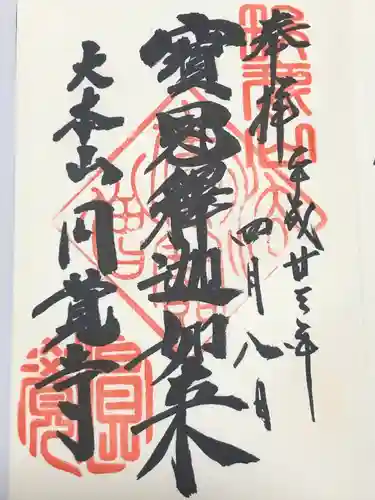 奉拝
平成廿三年
四月八日
寶冠釋迦如来
大本山円覚寺